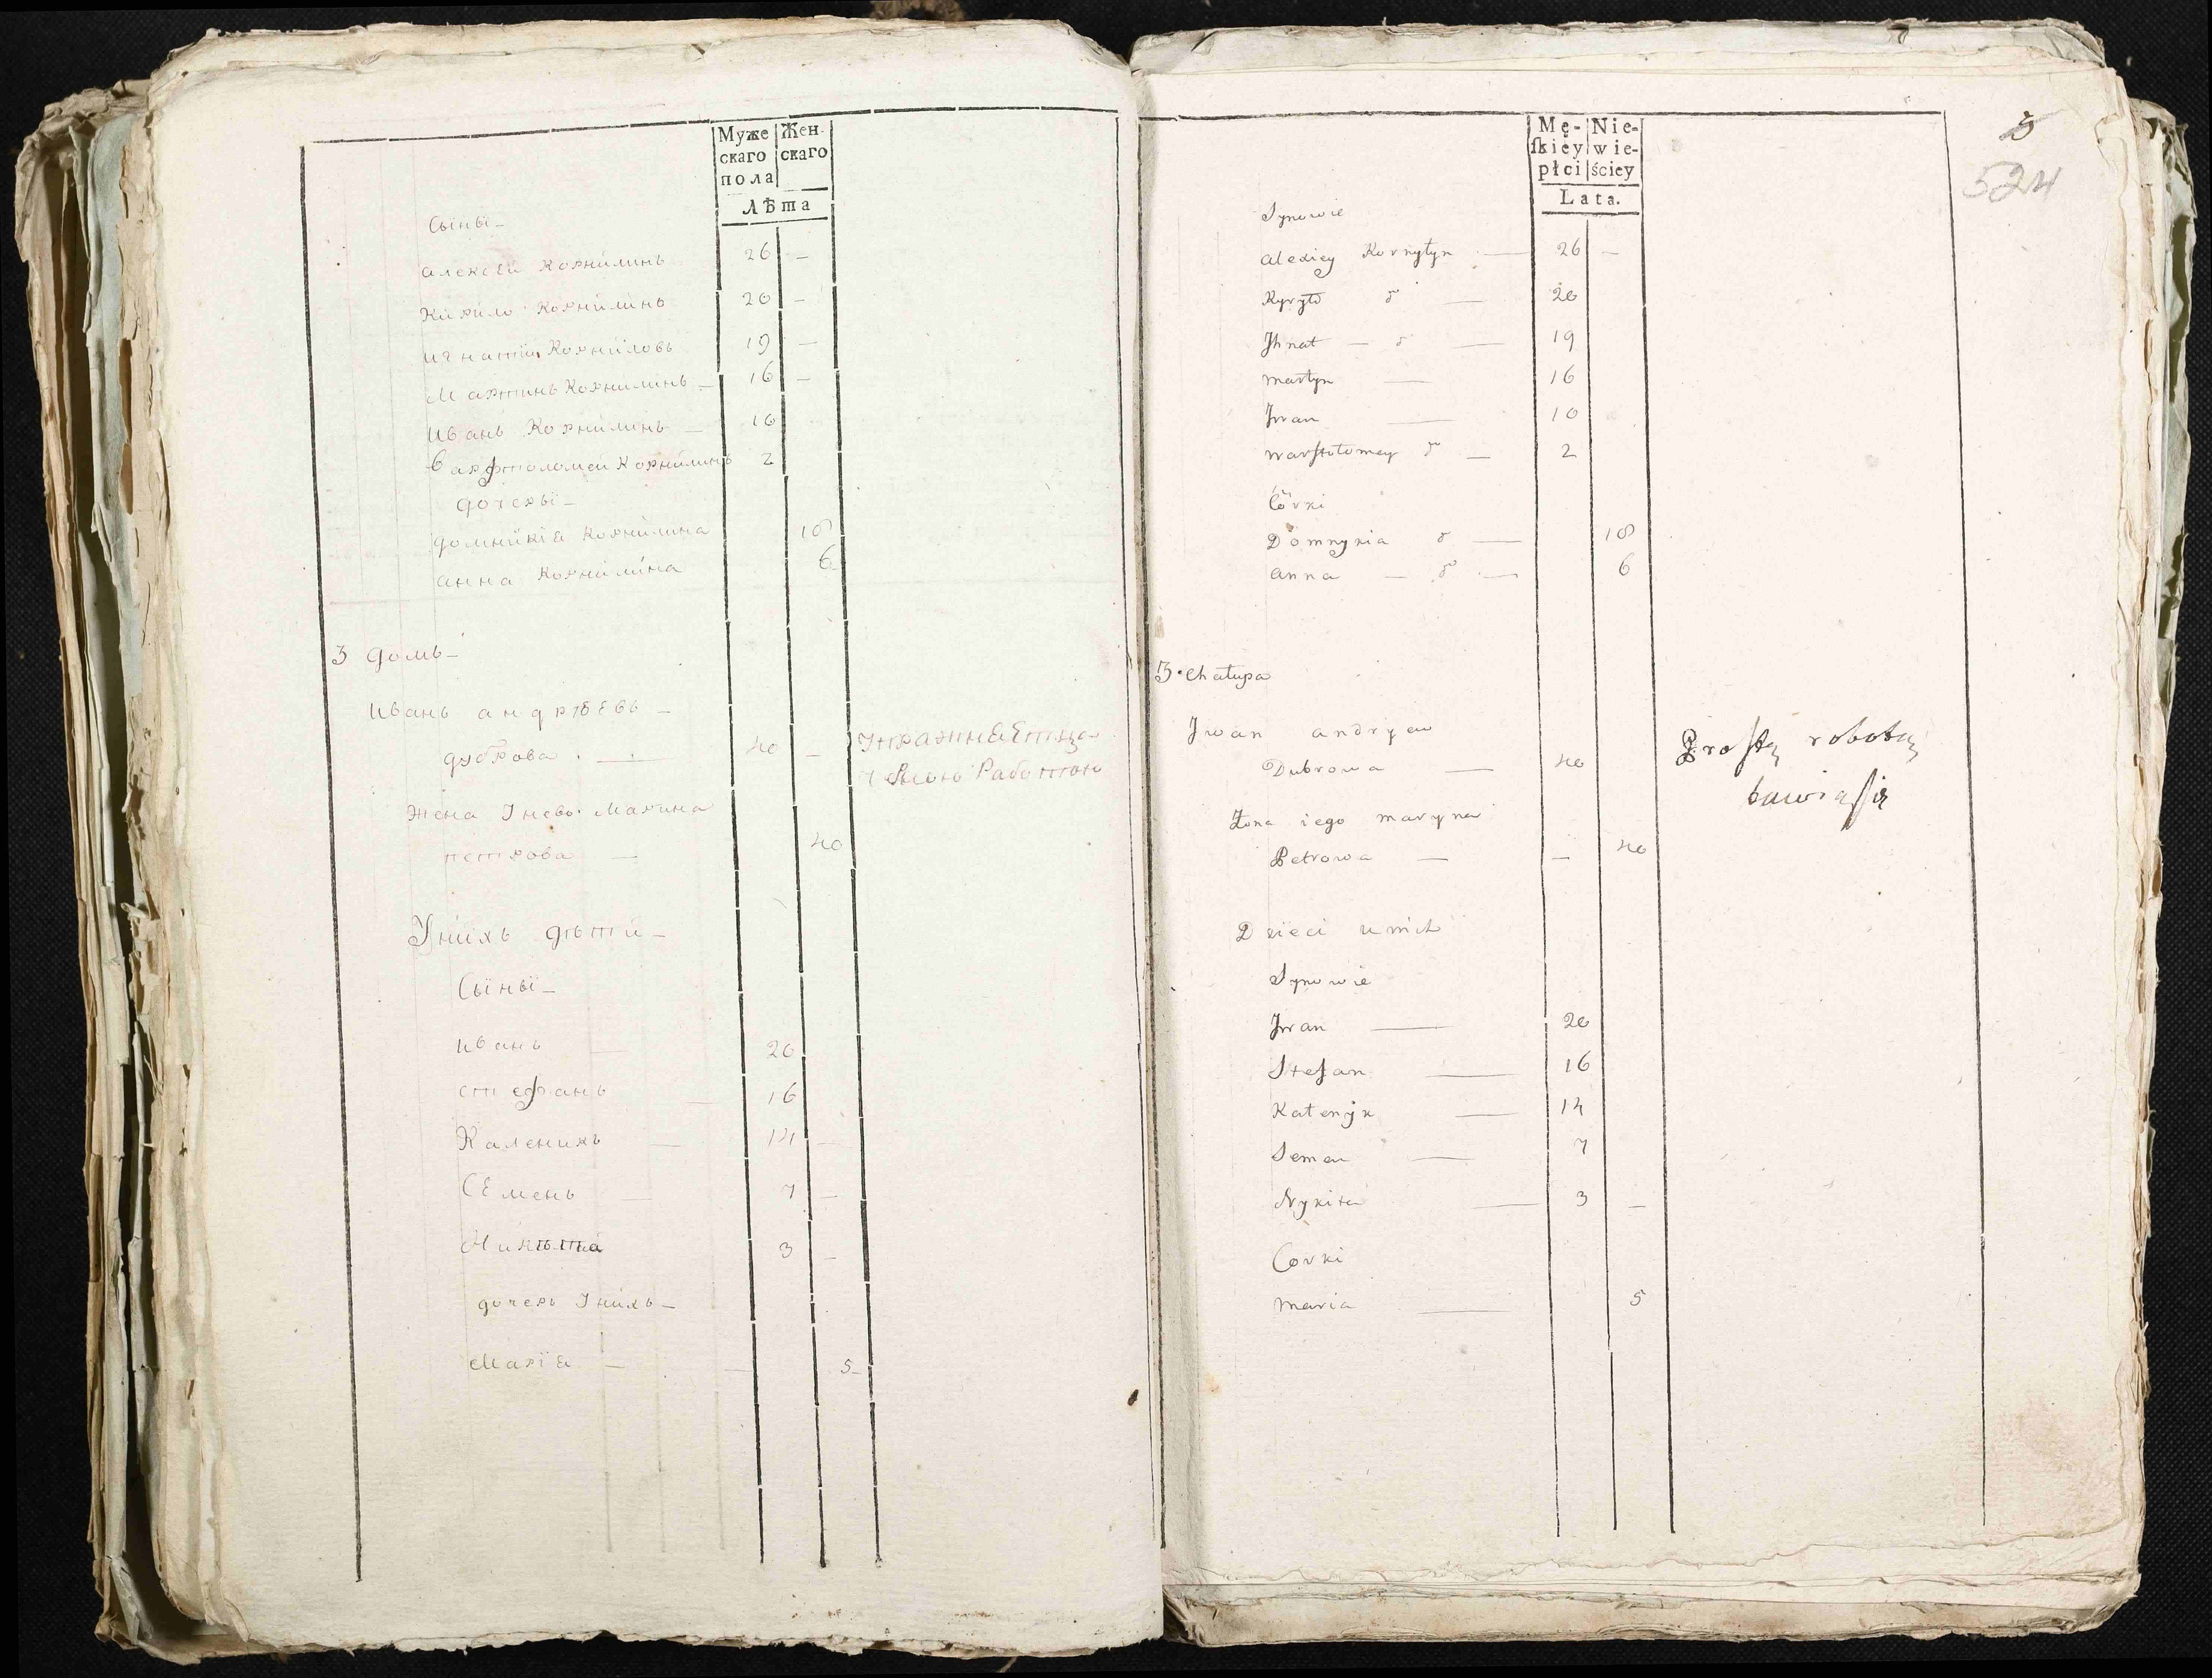 Муже Жен-
скаго скаго
пола
Лѣта
Сыны
алексѣй Корнилинъ 26 —
Кирило Корнилинъ 20 —
игнатій Корниловъ 19 —
Мартинъ Корнилинъ — 16 —
иванъ Корнилинъ — 10
варфтоломей Корнилинъ 2
дочеры
домникіа Корнилина 18
анна Корнилина 6
3 домъ
иванъ андрѣевъ —
дуброва — 40 — Упражнаетца
чорною Работою
жена Унево Марина
петрова — 40
Унихъ дѣти
Сыны
иванъ — 20
стефанъ 16
Каленикъ — 14 —
Семенъ — 7 —
Никита 3 —
дочерь Унихъ
Марїа — 5
5
524
Mę- Nie-
ſkiey wie-
płci ściey
Lata.
Synowie
alexiey Kornyłyn — 26 —
Kyryło d — 20
Jhnat — d — 19
martyn — 16
Jwan — 10
warftołomey d — 2
Córki
Domnykia d — 18
anna — d — 6
3. Chałupa
Jwan andryew
Dubrowa — 40 Proſtą robotą
bawiąſię
Żona iego maryna
Petrowa — — 40
Dzieci u nich
Synowie
Jwan — 20
Stefan — 16
Kałenÿk — 14
Semen — 7
Nykita — 3 —
Corki
maria — 5